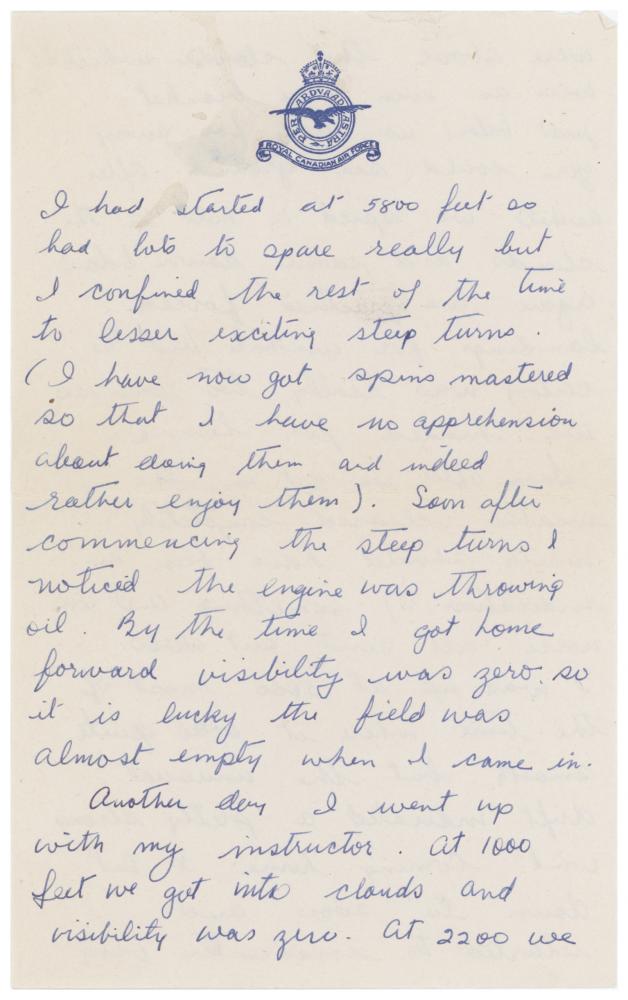 PER ARDVA AD ASTRA
ROYAL CANADIAN AIR FORCE
I had started at 5800 feet so
had lots to spare really but
I confined the rest of the time
to lesser exciting steep turns.
(I have now got spins mastered
so that I have no apprehension
about doing them and indeed
rather enjoy them). Soon after
commencing the steep turns I
noticed the engine was throwing
oil. By the time I got home
forward visibility was zero. so
it is lucky the field was
almost empty when I came in.
Another day I went up
with my instructor. At 1000
feet we got into clouds and
visibility was zero. At 2200 we